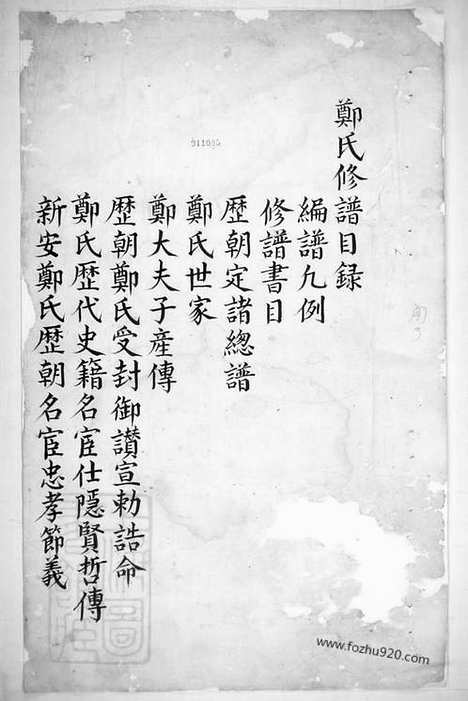 鄭氏修譜目録
編譜凢例
修譜書目
歷朝定諸總譜
鄭氏世家
鄭大夫子産傳
歷朝鄭氏受封御讃宣勅誥命
鄭氏歷代史籍名宦仕隱賢哲傳
新安鄭氏歷朝名宦忠孝節義
911005
www.fozhu920.com